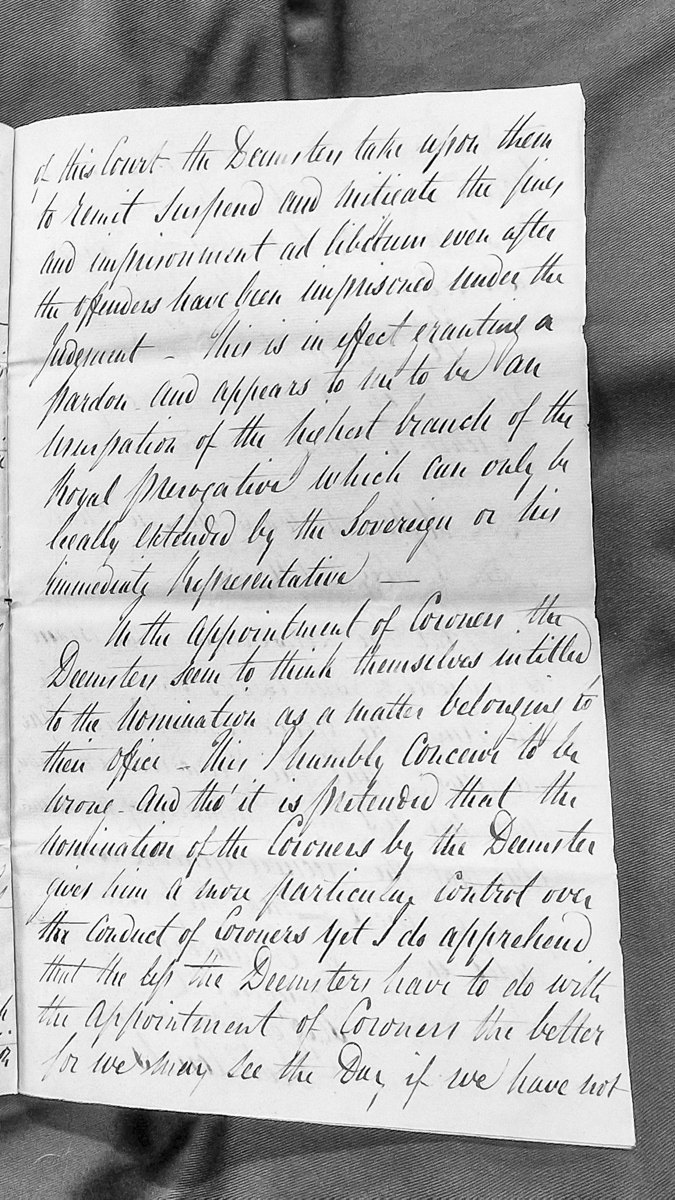 of this Court the Deemsters take upon them
to remit suspend and mitigate the fines
and imprisonment ad libitum even after
the offenders have been imprisoned under the
Judgment – This is in effect granting a
pardon and appears to me to be an
usurpation of the highest branch of the
Royal Prerogative which can only be
legally extended by the Sovereign or his
immediate Representative —
In the appointment of Coroners the
Deemsters seem to think themselves intitled
to the Nomination as a matter belonging to
their office – This I humbly Conceive to be
wrong – And tho' it is pretended that the
Nomination of the Coroners by the Deemster
gives him a more particular Control over
the Conduct of Coroners yet I do apprehend
that the less the Deemsters have to do with
the Appointment of Coroners the better
for we may see the Day if we have not